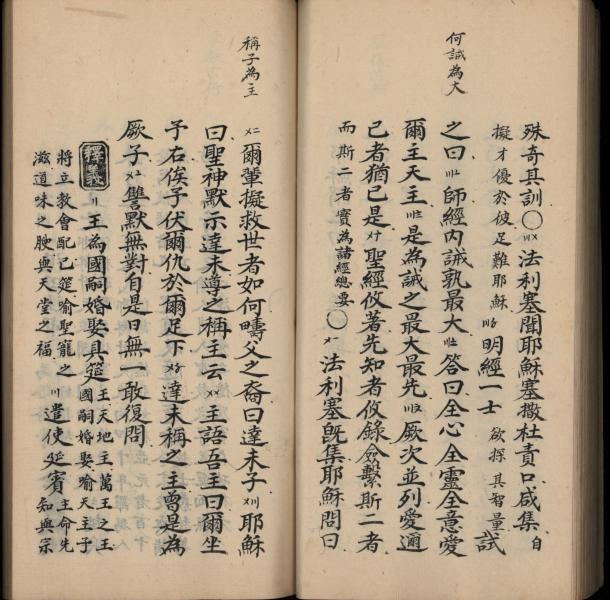 何誡為大
殊奇其訓〇〢〤法利塞聞耶穌塞撒杜責口咸集自
擬才優於彼足難耶穌〢〥明經一士欲探其智量試
之曰〢〦師經內誡孰最大〢〧答曰全心全靈全意愛
爾主天主〢〨是為誡之最大最先〢〩厥次並列愛邇
己者猶己是〤〸聖經攸著先知者攸錄僉繫斯二者
而斯二者實為諸經總要〇〤〡法利塞既集耶穌問曰
稱子為主
〤〢爾輩擬救世者如何疇父之裔曰達未子〤〣耶穌
曰聖神默示達未尊之稱主云〤〤主語吾主曰爾坐
子右俟子伏爾仇於爾足下〤〥達未稱之主曾是為
厥子〤〦讐默無對自是日無一敢復問
釋義〢王為國嗣婚娶具筵王天地主萬王之王國嗣婚娶喻天主子
將立教會配己筵喻聖寵之滋道味之腴與天堂之福〣遣使延賓主命先知與宗